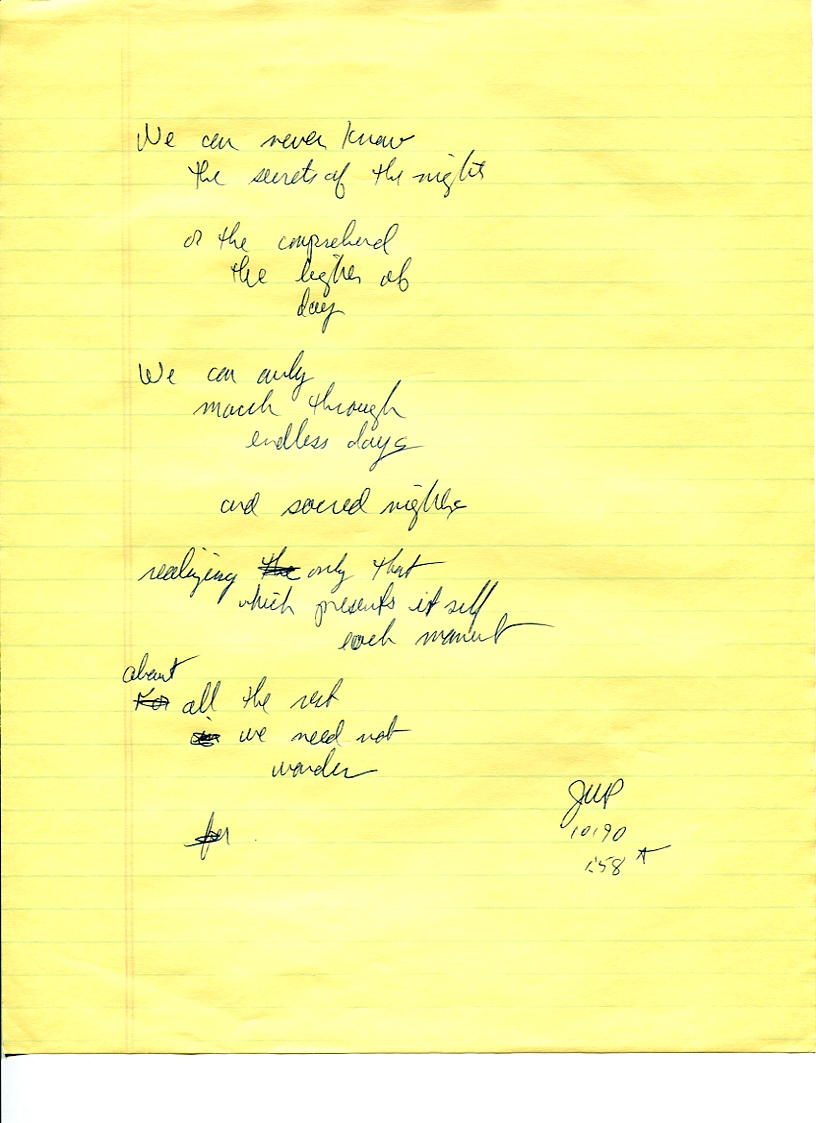 We can never know
the secrets of the night
or the comprehend
the lights of
day
We can only
march through
endless days
and sacred nights
realizing the only that
which presents it self
each moment
about
For all the rest
we need not
wonder
for
JWP
10/90
1:58 A